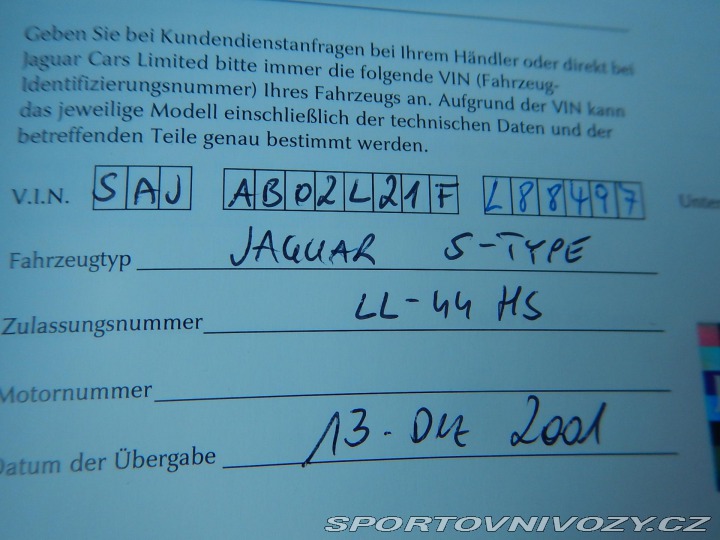 Geben Sie bei Kundendienstanfragen bei Ihrem Händler oder direkt bei
Jaguar Cars Limited bitte immer die folgende VIN (Fahrzeug-
Identifizierungsnummer) Ihres Fahrzeugs an. Aufgrund der VIN kann
das jeweilige Modell einschließlich der technischen Daten und der
betreffenden Teile genau bestimmt werden.
V.I.N. SAJ AB02L21F L88497
Fahrzeugtyp JAGUAR S-TYPE
Zulassungsnummer LL-44 HS
Motornummer
Datum der Übergabe 13. DEZ 2001
SPORTOVNIVOZY.CZ